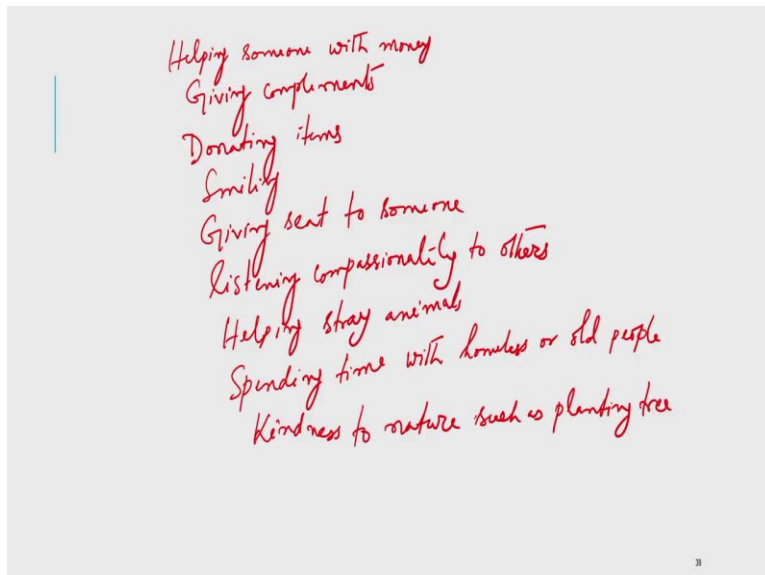 Helping someone with money
Giving complements
Donating items
Smiling
Giving seat to someone
listening compassionality to others
Helping stray animals
Spending time with homeless or old people
Kindness to nature such as planting tree
30